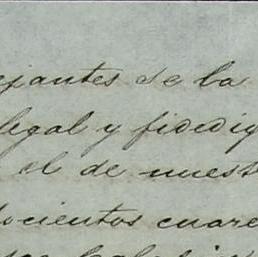 ejantes de la
legal y fidedig
el de nuest
docientos cuare